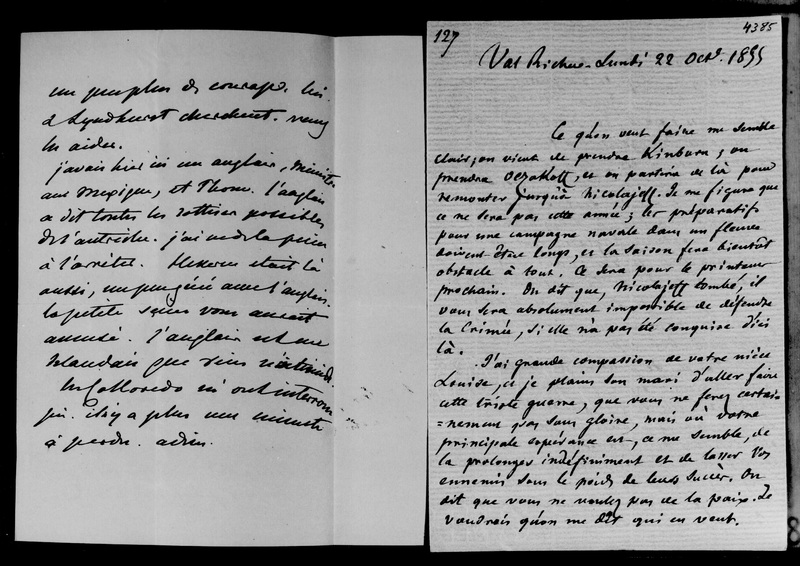 un peu plus de courage. lui
& Lyndhurst cherchent. venez
les aider.
j'avais hier ici un anglais, ministre
au Mexique, et Thom. l'anglais
a dit toutes les sottises possibles
de l'autriche. j'ai eu de la peine
à l'arrêter. Hekeren était là
aussi, un peu gêné avec l'anglais.
la petite scène vous aurait
amusé. l'anglais est un
irlandais que rien n'intimide
les Colloredo m'ont interrom
pu. il n'y a plus une minute
à perdre. adieu.
127
4385
Val Richer - Lundi 22 Octe. 1855
Ce qu'on veut faire me semble
clair; on vient de prendre Kinburn; on
prendra Oczakoff, et on partira de là pour
remonter jusqu'à Nicolajeff. Je me figure que
ce ne sera pas cette année; les préparatifs
pour une campagne navale dans un fleuve
doivent être longs, et la saison fera bientôt
obstacle à tout. Ce sera pour le printems
prochain. On dit que, Nicolajeff tombé, il
vous sera absolument impossible de défendre
la Crimée, si elle n'a pas été conquise d'ici
là.
J'ai grande compassion de votre nièce
Louise, et je plains son mari d'aller faire
cette triste guerre, que vous ne ferez certai
=nement pas sans gloire, mais où votre
principale espérance est, ce me semble, de
la prolonger indéfiniment et de lasser vos
ennemis sous le poids de leurs succès. On
dit que vous ne voulez pas de la paix. Je
voudrais qu'on me dît qui en veut.